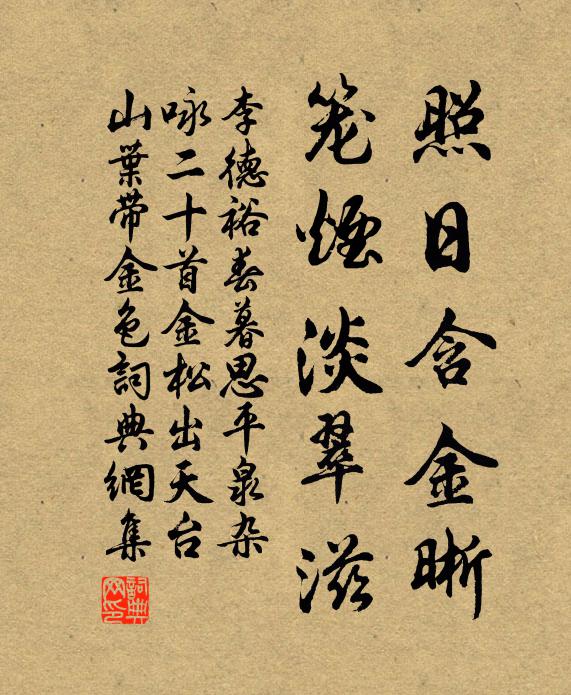 照日含金晰
笼煙淡翠滋
李德裕春暮思平泉杂
咏二十首金松出天台
山葉带金色詞典網集
詞典网印